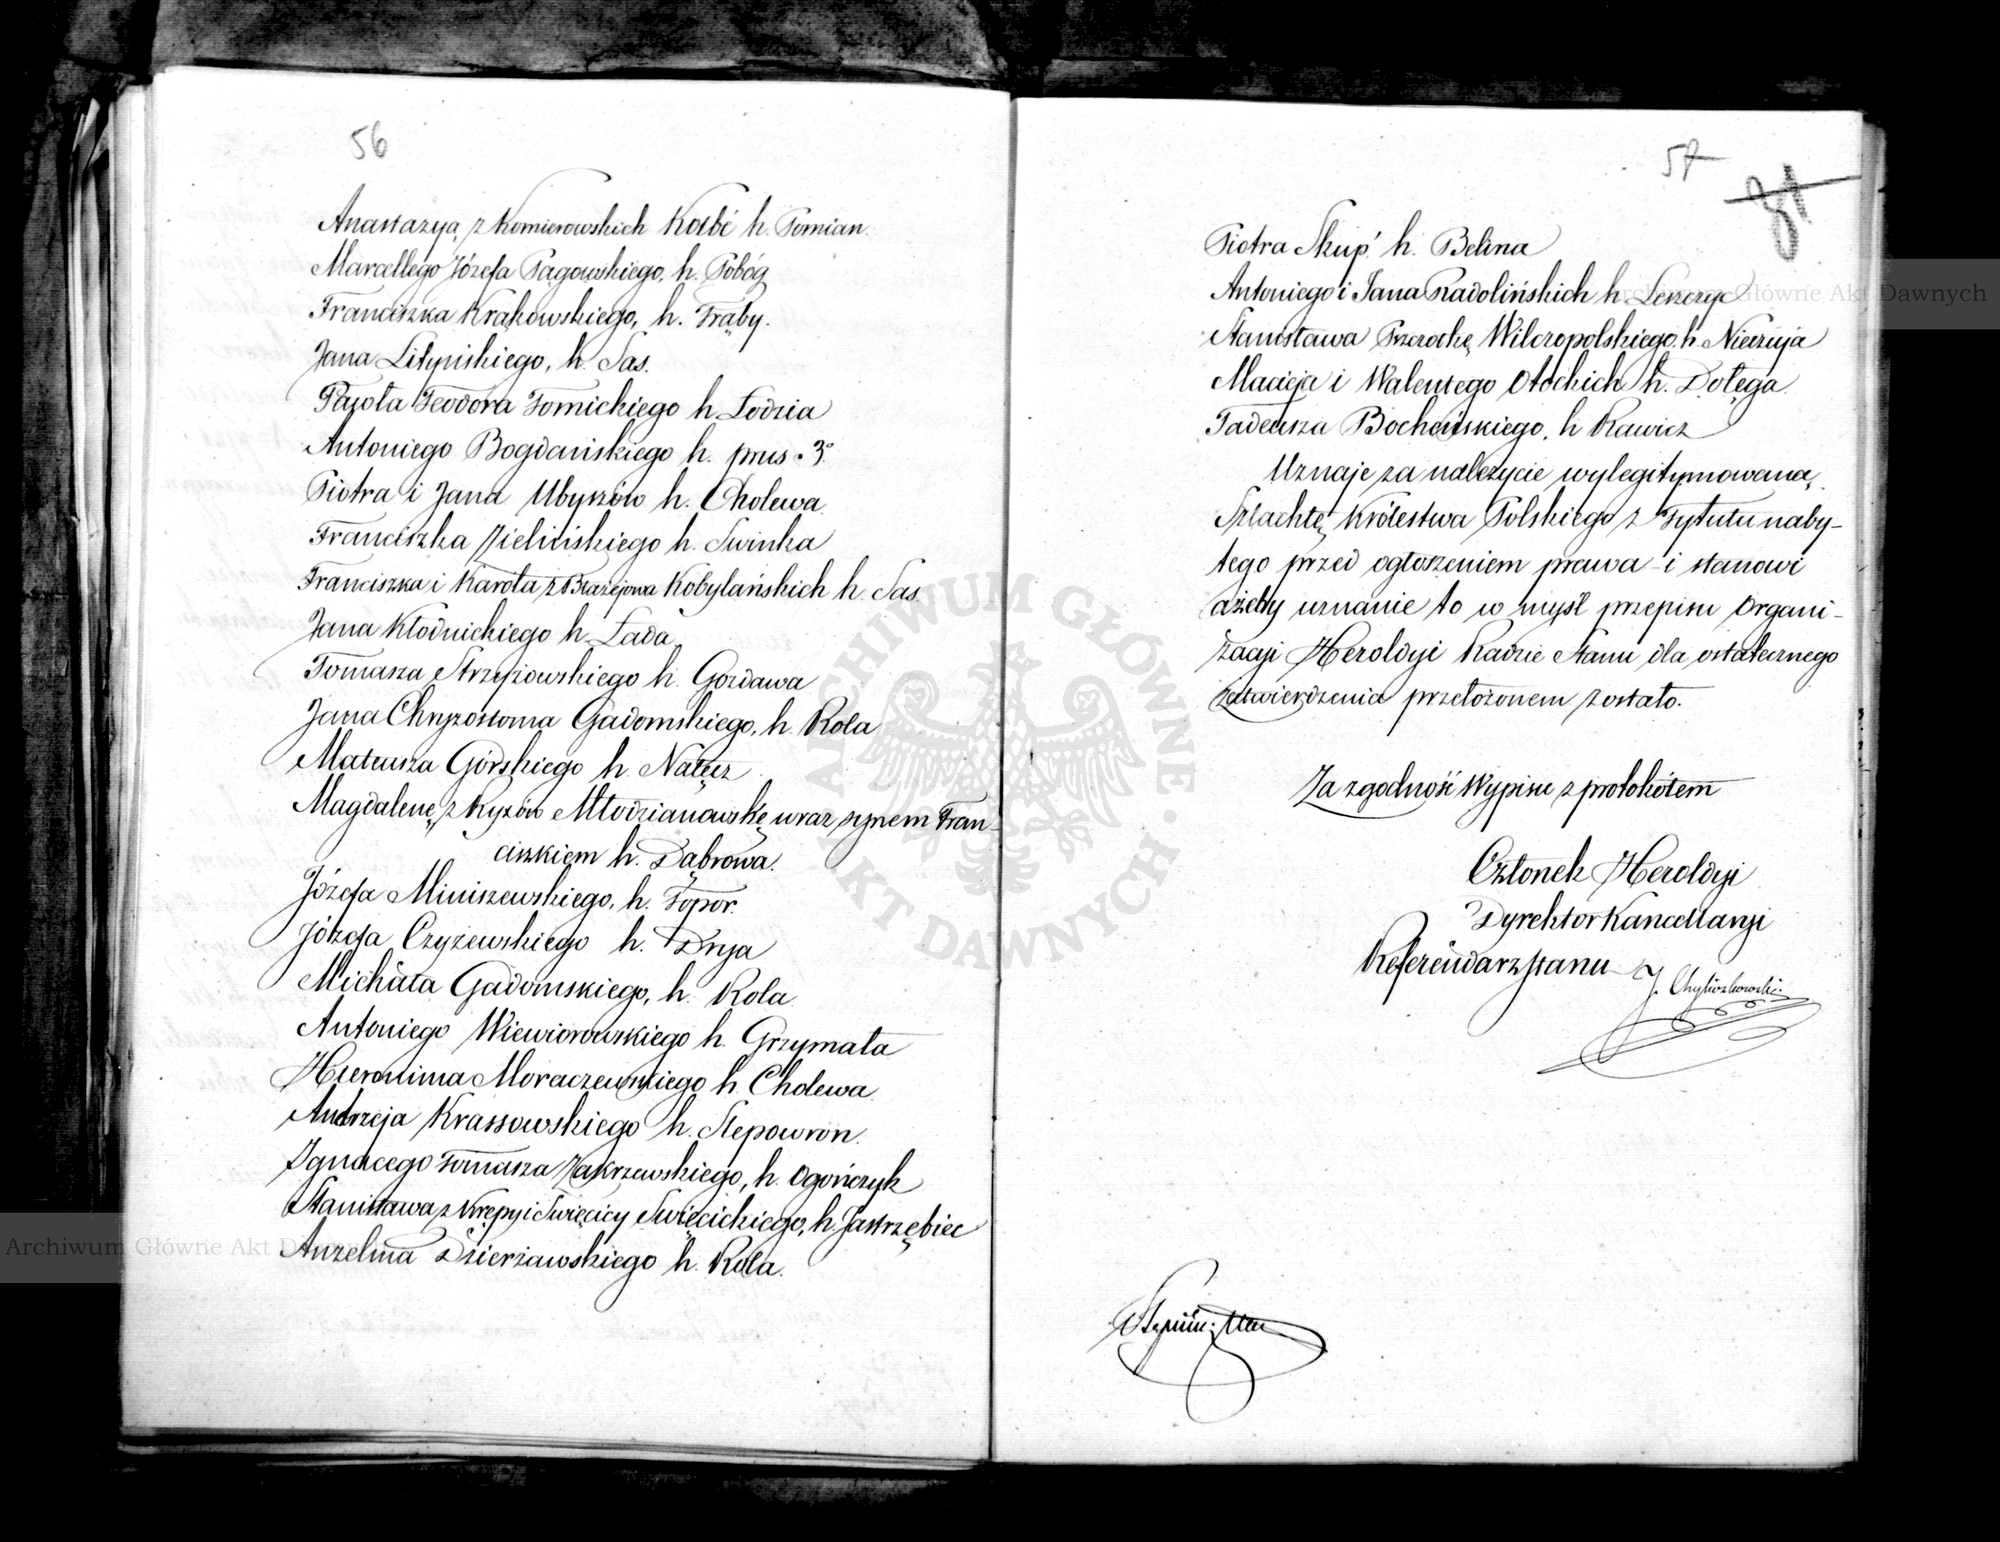 56
Anastazyą z Komierowskich Kolbé h. Pomian.
Marcellego Józefa Pągowskiego, h. Pobóg
Franciszka Krąkowskiego, h. Trąby.
Jana Lityńskiego, h. Sas.
Pawła Teodora Tomickiego h. Łodzia
Antoniego Bogdańskiego h. prus. 3º
Piotra i Jana Ubyszów h. Cholewa.
Franciszka Zielińskiego h. Swinka
Franciszka i Karola z Błażejowa Kobylańskich h. Sas.
Jana Kłodnickiego h. Łada
Tomasza Strzyżowskiego h. Gozdawa
Jana Chryzostoma Gadomskiego, h. Rola
Mateusza Górskiego h. Nałęcz
Magdalenę z Ryxów Młodzianowskę wraz synem Fran-
ciszkiem h. Dąbrowa.
Józefa Miniszewskiego, h. Topor.
Józefa Czyżewskiego h. Dryja
Michała Gadomskiego, h. Rola
Antoniego Wiewiorowskiego h. Grzymała
Hieronima Moraczewskiego h. Cholewa.
Andrzeja Krassowskiego h. Slepowron.
Ignacego Tomasza Zakrzewskiego, h. Ogończyk
Stanisława z Krępy i Swięcicy Swięcickiego, h. Jastrzębiec
Anzelma Dzierżawskiego h. Rola.
57
Piotra Skup' h. Belina
Antoniego i Jana Radolińskich h. Leszczyc
Stanisława Wilczopolskiego h. Nieczuja
Macieja i Walentego Otockich h. Dołęga
Tadeusza Bocheńskiego, h Rawicz
Uznaje za należycie wylegitymowaną,
Szlachtę Królestwa Polskiego z Tytułu naby-
tego przed ogłoszeniem prawa i stanowi
ażeby uznanie to w myśl przepisu Organi-
zacyi Heroldyi Radzie Stanu dla ostatecznego
zatwierdzenia przełożonem zostało.
Za zgodność Wypisu z protokółem
Członek Heroldyi
Dyrektor Kancellaryi
Referendarz Stanu J. Chyliczkowski
Archiwum Główne Akt Dawnych
Archiwum Główne Akt Dawnych
ARCHIWUM GŁÓWNE AKT DAWNYCH